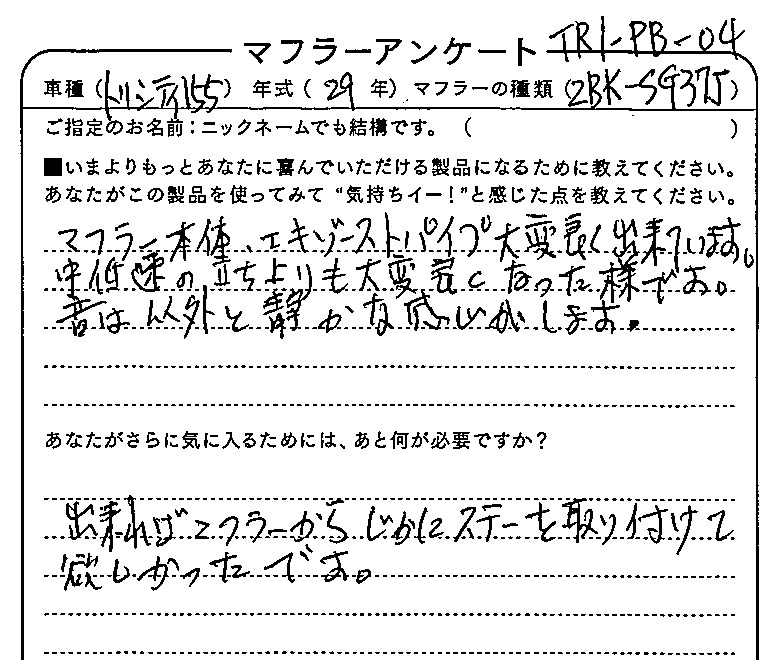 マフラーアンケート TRI-PB-04
車種(トリシティ155) 年式(29年) マフラーの種類(2BK-SG37J)
ご指定のお名前:ニックネームでも結構です。( )
■いまよりもっとあなたに喜んでいただける製品になるために教えてください。
あなたがこの製品を使ってみて“気持ちイー!”と感じた点を教えてください。
マフラー本体、エキゾーストパイプ大変良く出来ています。
中低速の立ちよりも大変良くなった様です。
音は以外と静かな感じがします。
あなたがさらに気に入るためには、あと何が必要ですか?
出来ればマフラーからじかにステーを取り付けて
欲しかったです。